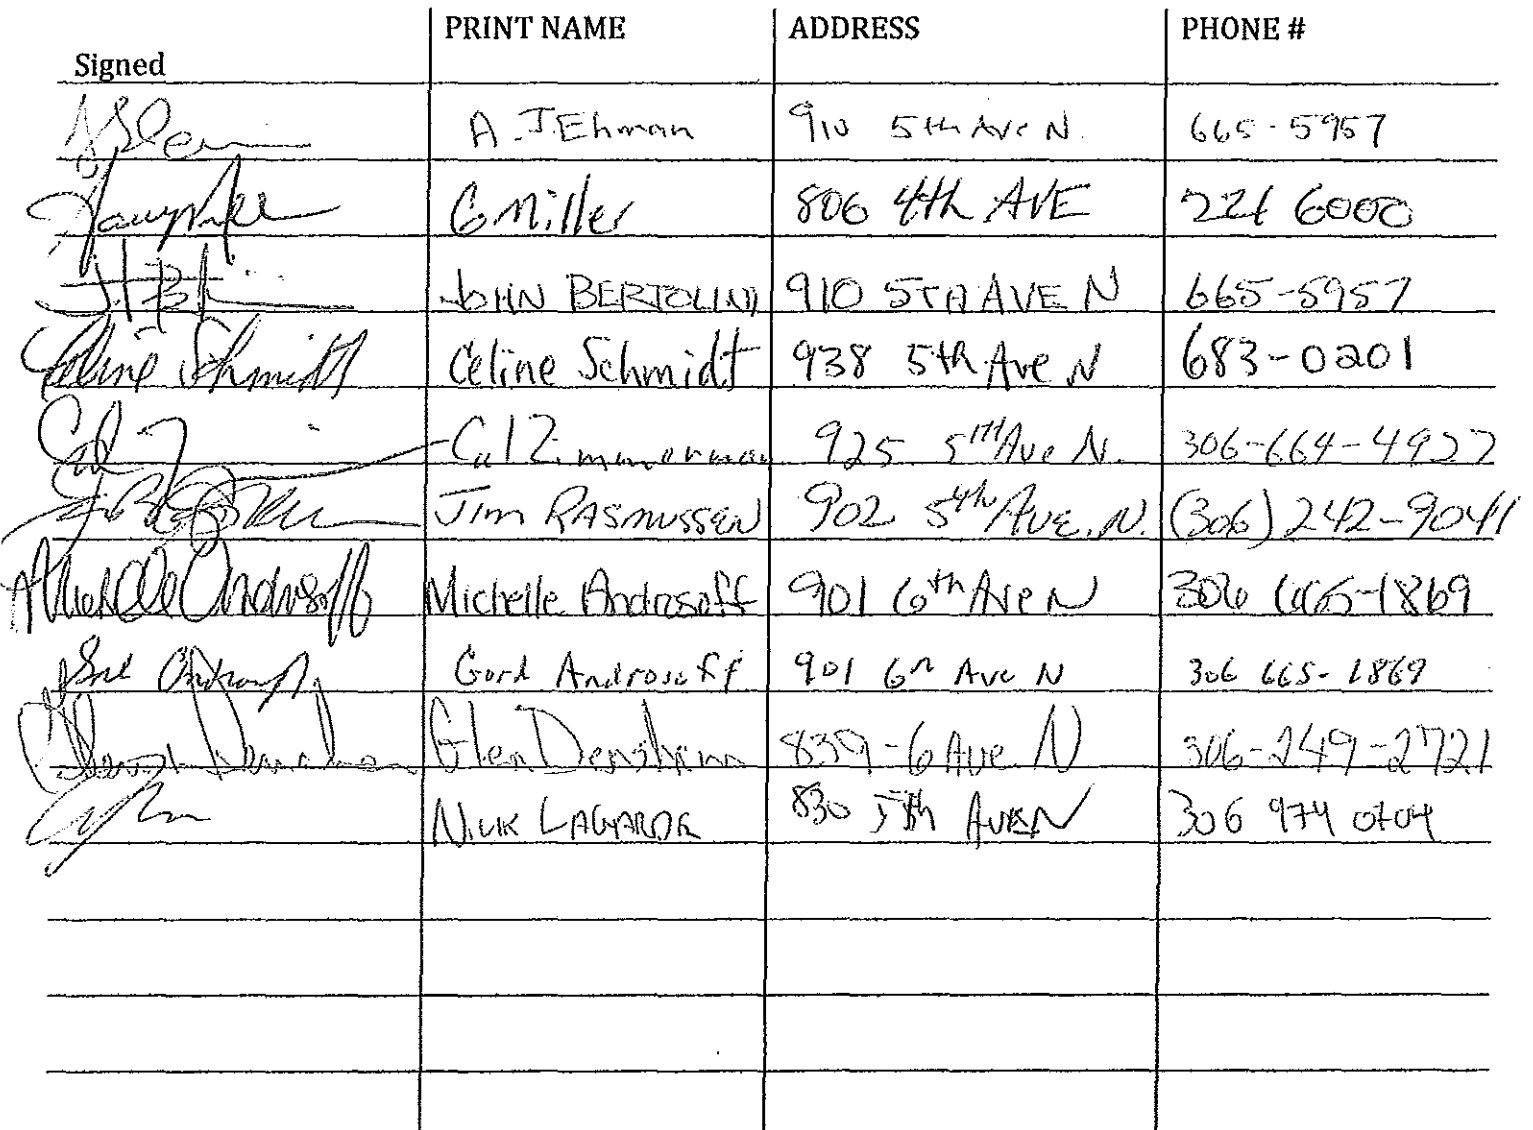 PRINT NAME ADDRESS PHONE #
Signed
A.J Ehman 910 5th Ave N. 665-5957
G Miller 806 4th AVE 221 6000
JOHN BERTOLINI 910 5TH AVE N 665-5957
Celine Schmidt Celine Schmidt 938 5th Ave N 683-0201
Cal Zimmerman 925 5TH Ave N. 306-664-4927
JIM RASMUSSEN 902 5th AVE. N. (306) 242-9041
Michelle Androsoff Michelle Androsoff 901 6th Ave N 306 665-1869
Gord Androsoff 901 6th Ave N 306 665-1869
Glen 839-6 Ave N 306-249-2721
NICK LAGARDE 830 5th AVE N 306 974 0704